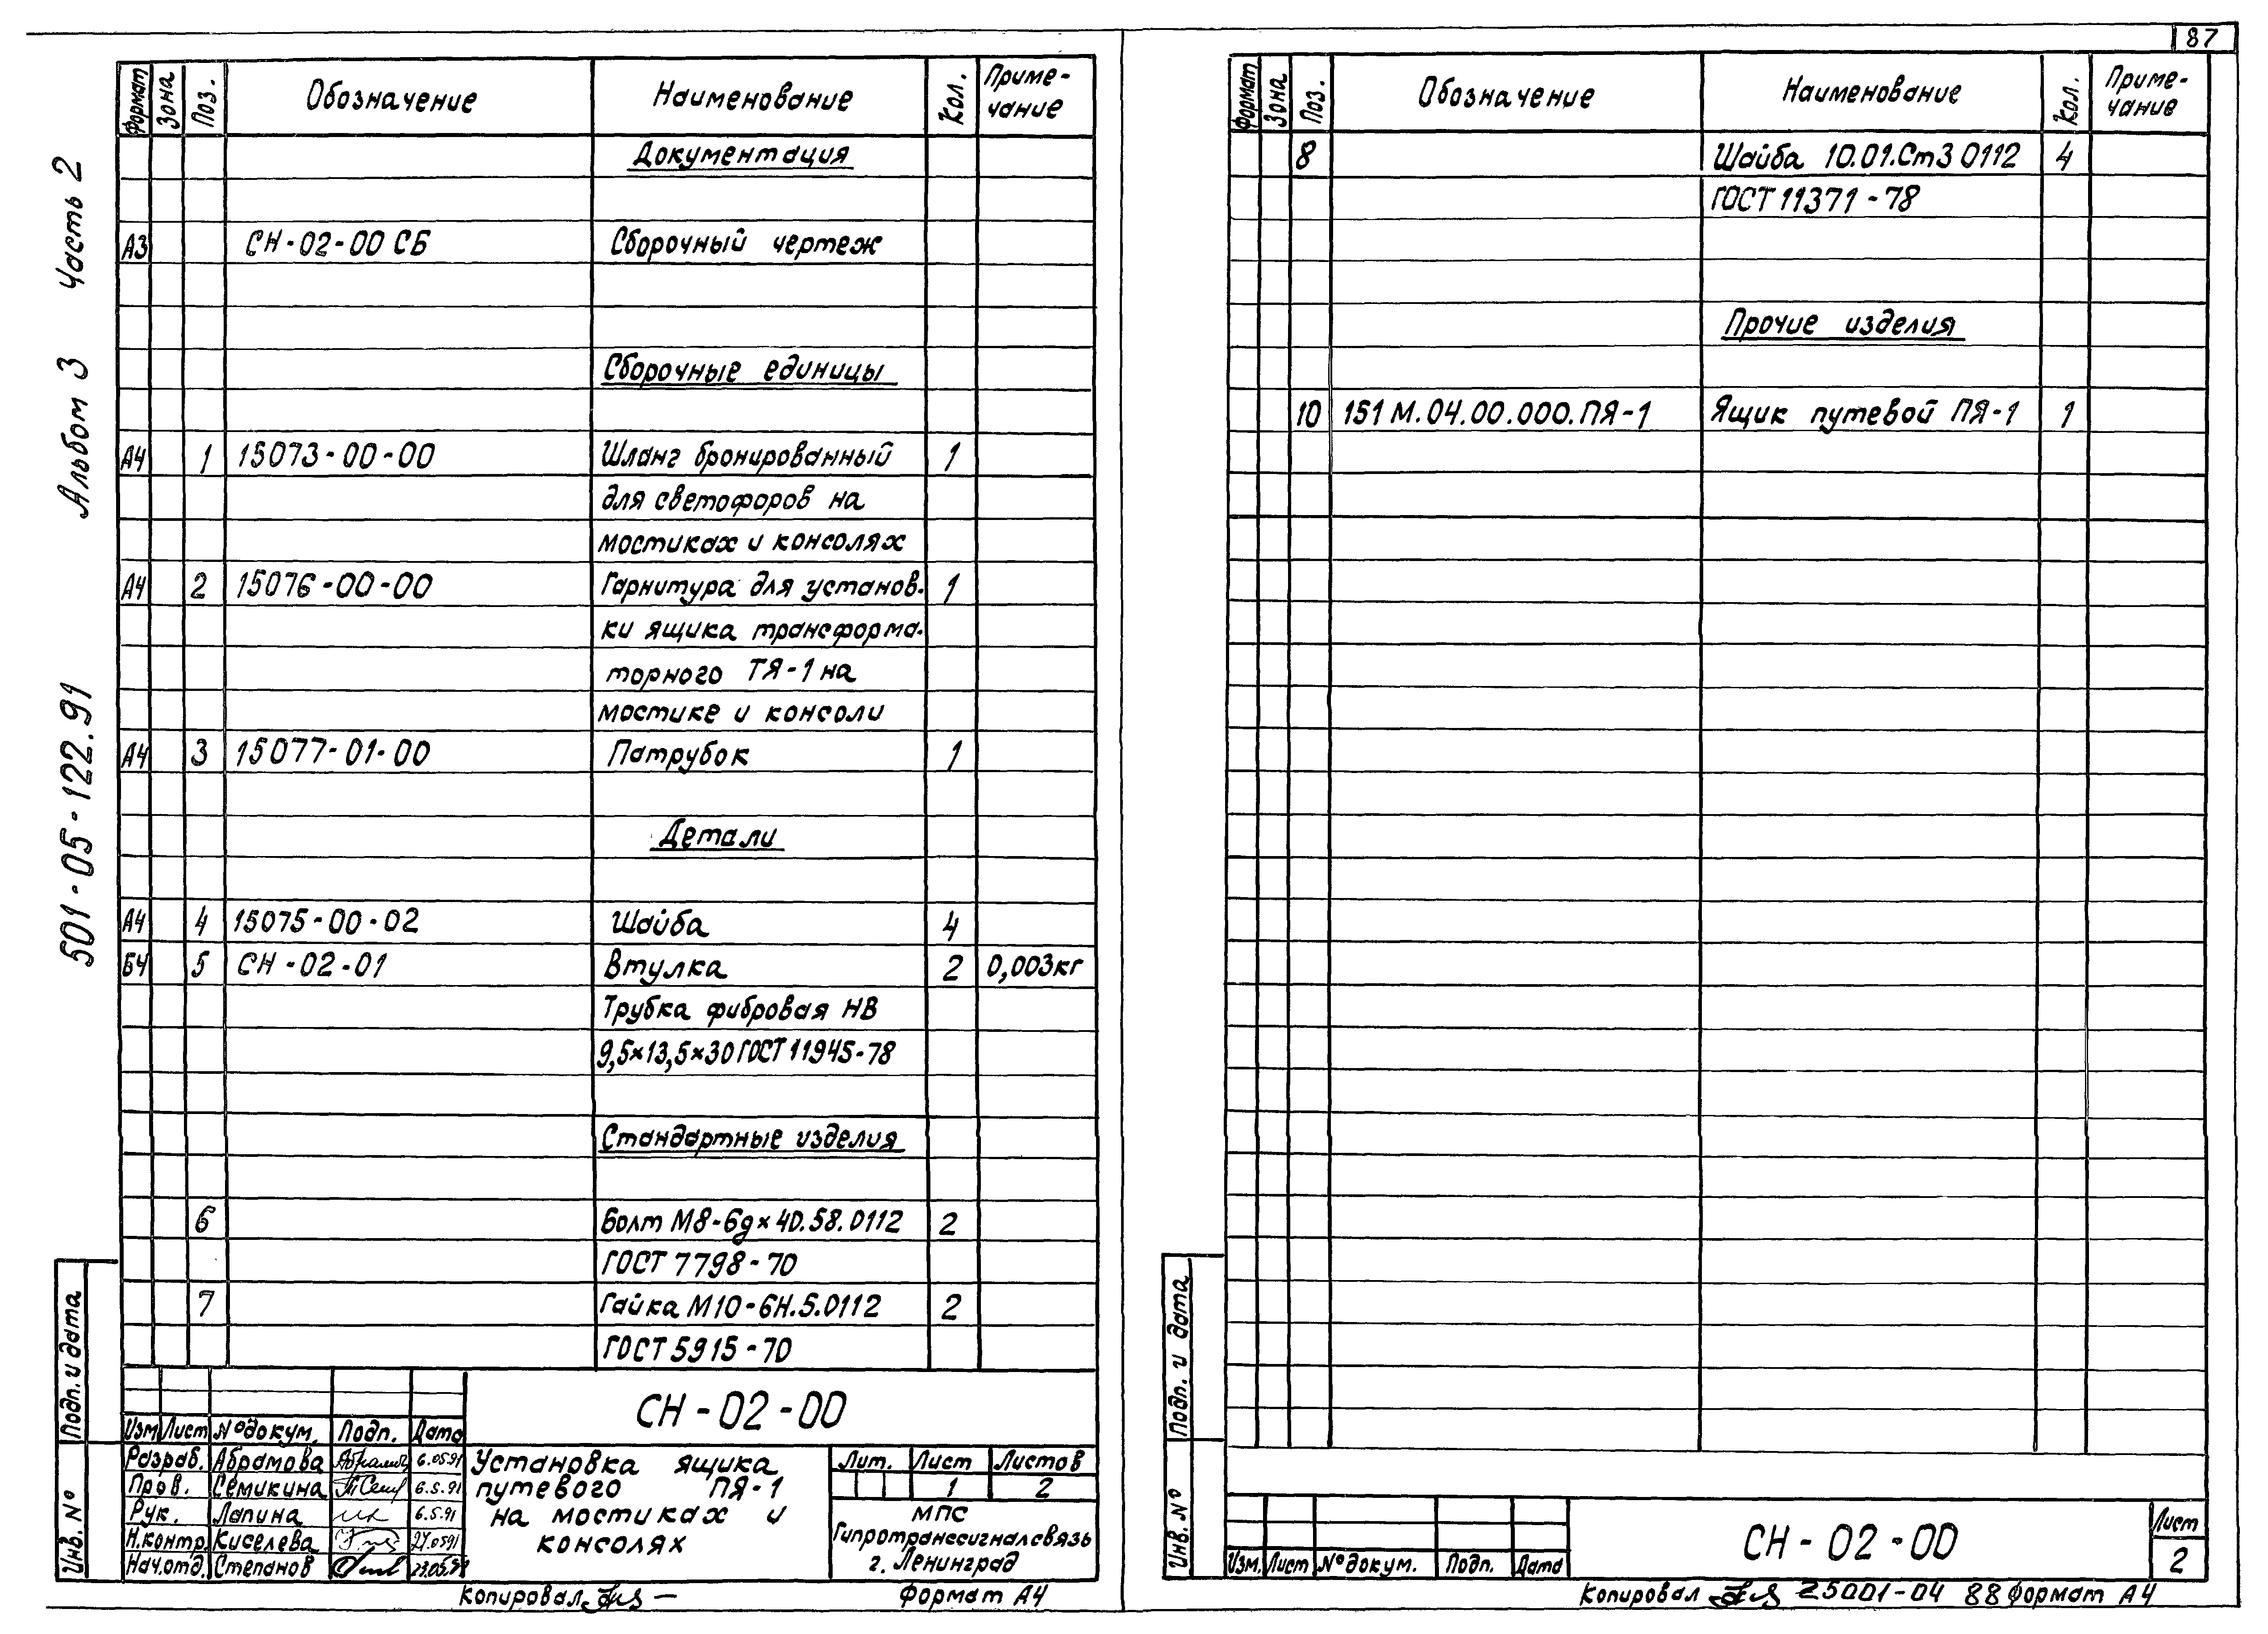 87
Альбом 3 Часть 2
501-05-122.91
Формат Зона Поз. Обозначение Наименование Кол. Приме-
чание
Документация
А3 СН-02-00 СБ Сборочный чертеж
Сборочные единицы
А4 1 15073-00-00 Шланг бронированный 1
для светофоров на
мостиках и консолях
А4 2 15076-00-00 Гарнитура для установ- 1
ки ящика трансформа-
торного ТЯ-1 на
мостике и консоли
А4 3 15077-01-00 Патрубок 1
Детали
А4 4 15075-00-02 Шайба 4
Б4 5 СН-02-01 Втулка 2 0,003кг
Трубка фибровая НВ
9,5×13,5×30 ГОСТ 11945-78
Стандартные изделия
6 Болт М8-6g×40.58.0112 2
ГОСТ 7798-70
7 Гайка М10-6Н.5.0112 2
ГОСТ 5915-70
Подп. и дата
Инв. №
СН-02-00
Изм Лист № докум. Подп. Дата
Разраб. Абрамова 6.05.91
Пров. Семикина 6.5.91
Рук. Лапина 6.5.91
Н.контр. Киселева 27.0591
Нач.отд. Степанов
Установка ящика
путевого ПЯ-1
на мостиках и
консолях
Лит. Лист Листов
1 2
МПС
Гипротранссигналсвязь
г. Ленинград
Копировал Формат А4
Формат Зона Поз. Обозначение Наименование Кол. Приме-
чание
8 Шайба 10.01.Ст3 0112 4
ГОСТ 11371-78
Прочие изделия
10 151 М.04.00.000.ПЯ-1 Ящик путевой ПЯ-1 1
Подп. и дата
Инв. №
Изм. Лист № докум. Подп. Дата
СН-02-00
Лист
2
Копировал 25001-04 88 Формат А4